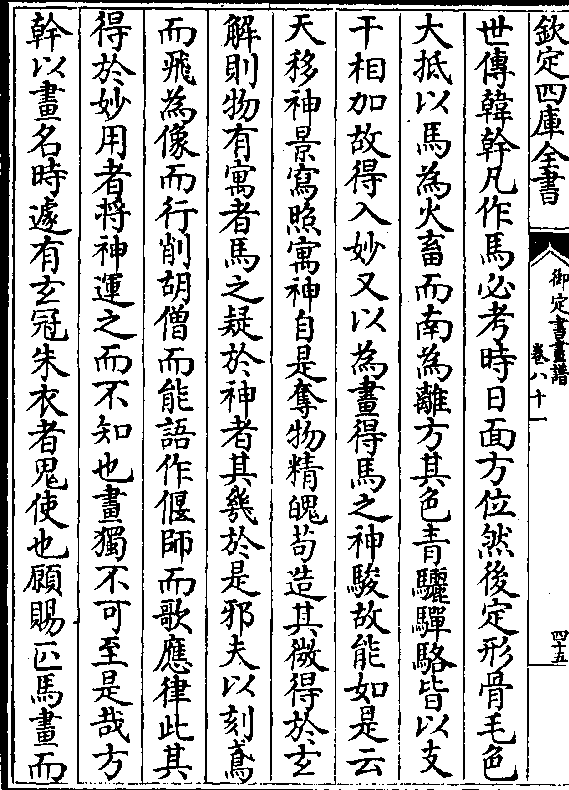 欽定四庫全書
御定書畫譜
卷八十一
四十五
世傳韓幹凡作馬必考時日面方位然後定形骨毛色
大抵以馬為火畜而南為離方其色青驪驒駱皆以支
干相加故得入妙又以為畫得馬之神駿故能如是云
天移神景寫照寓神自是奪物精魄苟造其微得於玄
解則物有寓者馬之疑於神者其幾於是邪夫以刻鳶
而飛為像而行削胡僧而能語作偃師而歌應律此其
得於妙用者將神運之而不知也畫獨不可至是哉方
幹以畫名時遽有玄冠朱衣者鬼使也願賜匹馬畫而